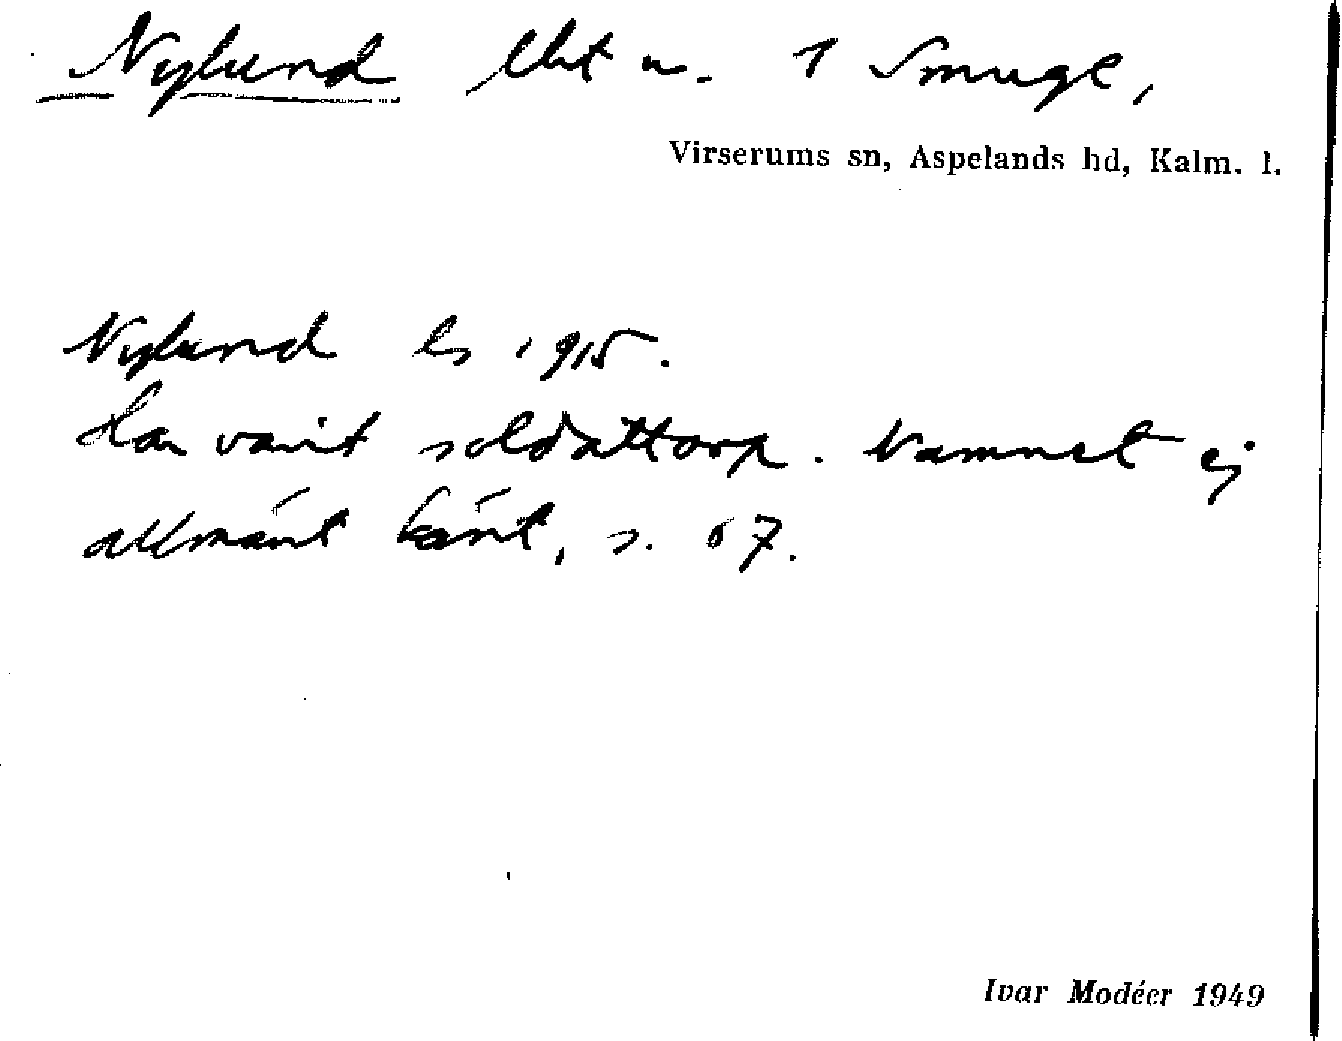 Nylund lht u. 1 Smuge,
Virserums sn, Aspelands hd, Kalm. l.
Nylund 1915.
Har varit soldattorp. Namnet ej
allmänt känt, s. 67.
Ivar Modéer 1949